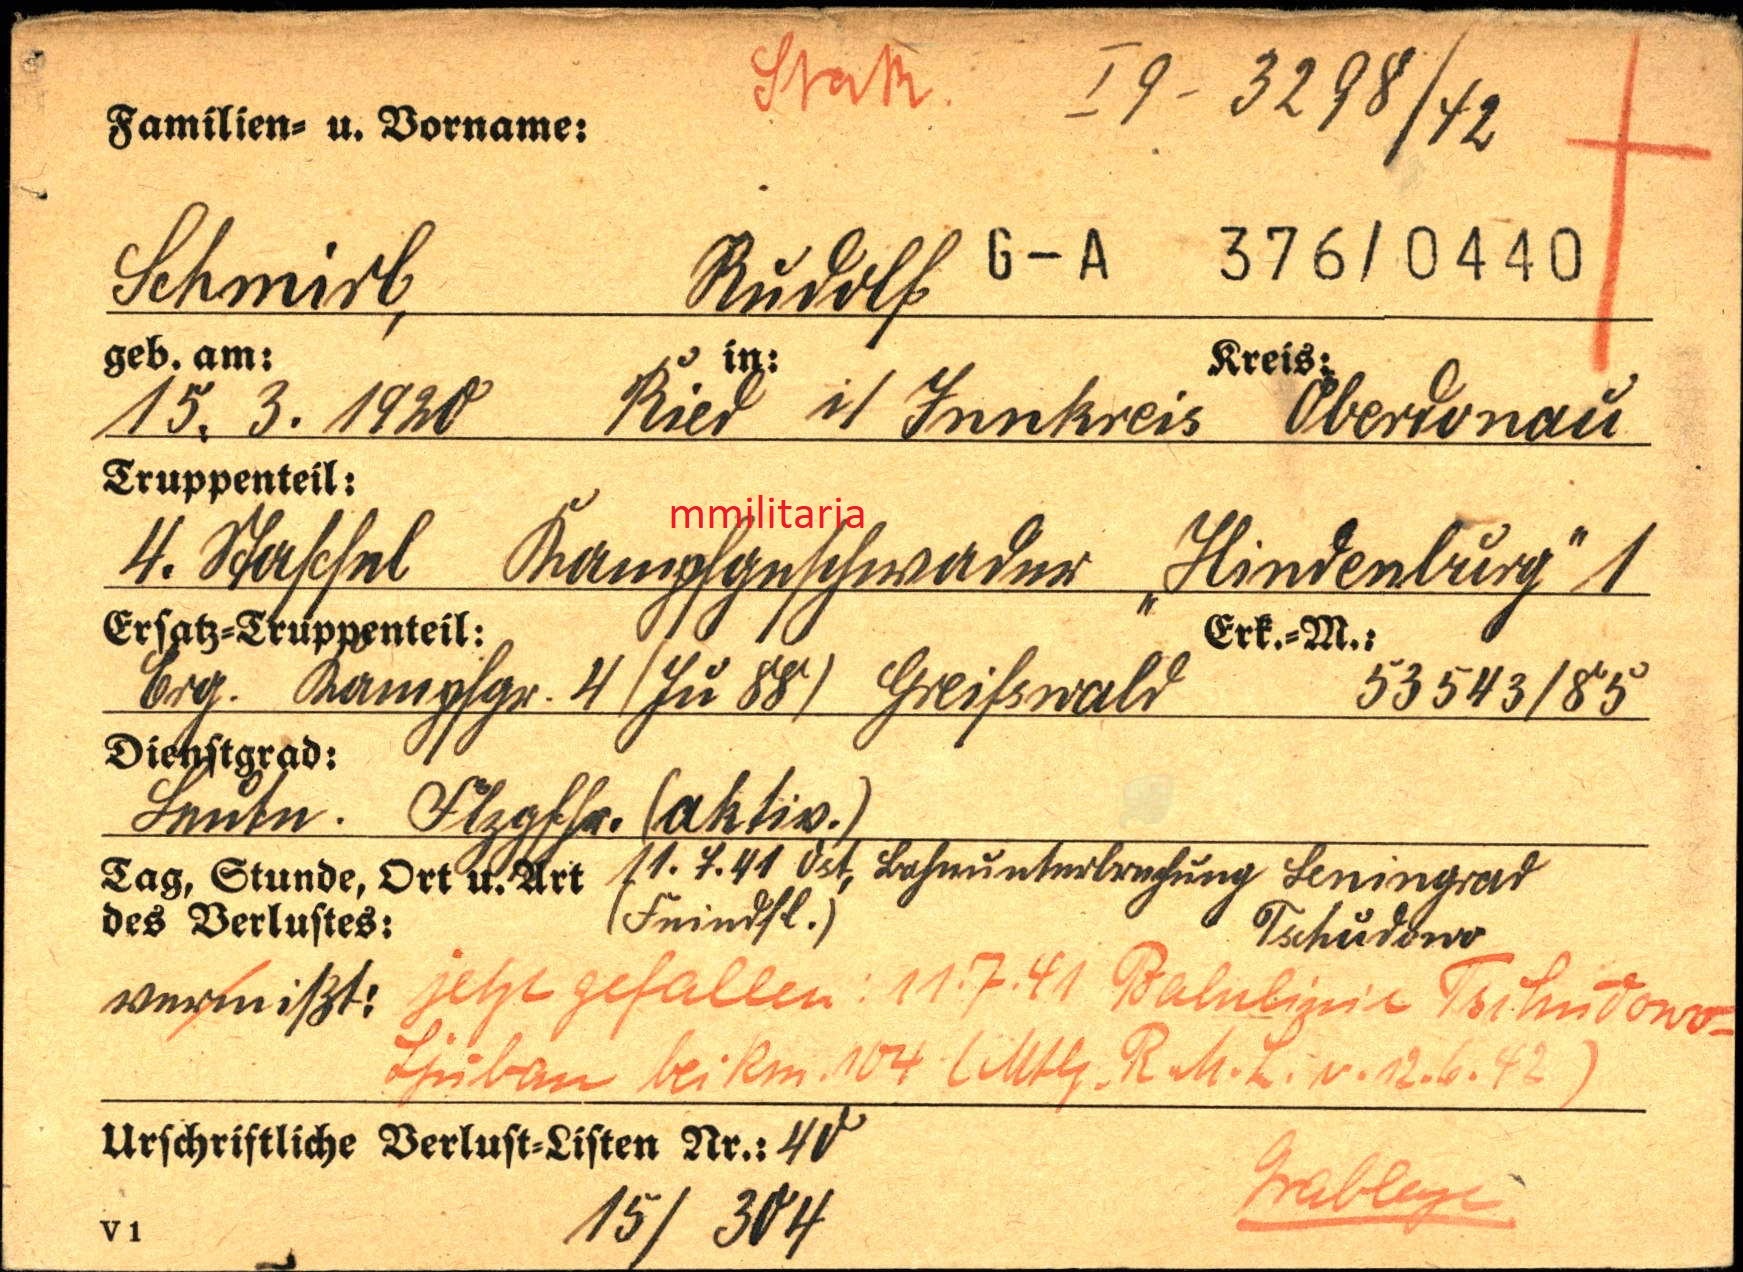 I 9 - 3298/42
Familien- u. Vorname:
Schmirl, Rudolf G-A 376/0440
geb. am: in: Kreis:
15. 3. 1920 Ried i/ Innkreis Oberdonau
Truppenteil:
mmilitaria
4. Staffel Kampfgeschwader „Hindenburg" 1
Ersatz-Truppenteil: Erk.-M.:
Erg. Kampfgr. 4 (Ju 88) Greifswald 53543/85
Dienstgrad:
Leutn. Flzgfhr. (aktiv.)
Tag, Stunde, Ort u. Art 11. 7. 41 Ost, Bahnunterbrechung Leningrad
des Verlustes: (Feindfl.) Tschudowo
vermißt: jetzt gefallen: 11.7.41 Bahnlinie Tschudowo-
Ljuban bei km. 104 (Mtlg. R.M.L. v. 12.6.42)
Urschriftliche Verlust-Listen Nr.: 40
Grablage
V 1 15/ 304